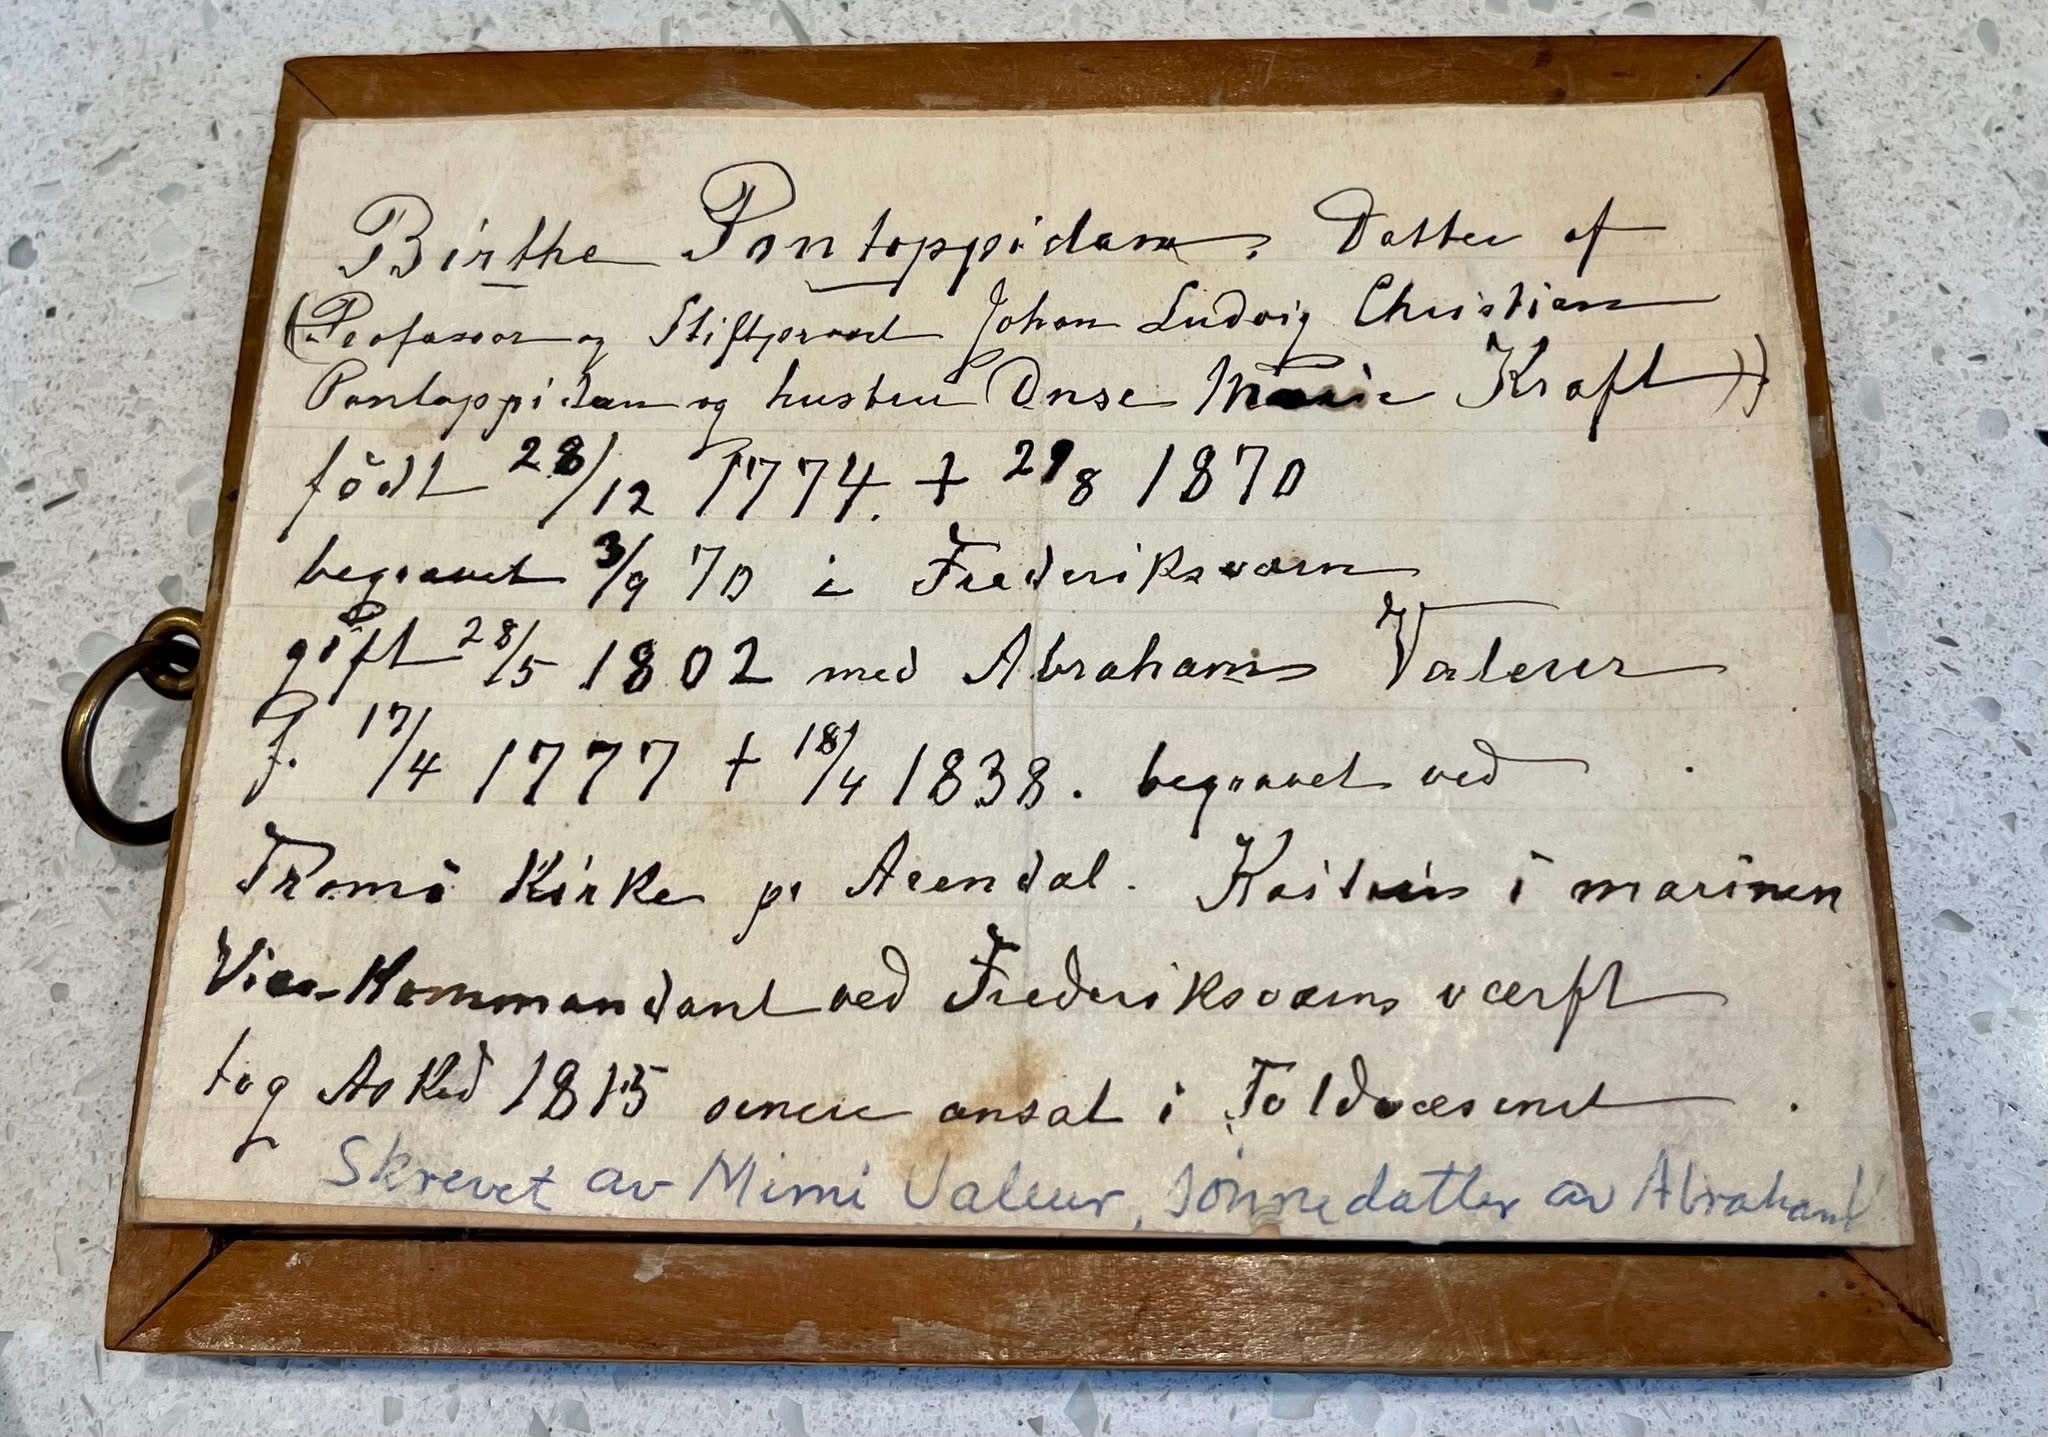 Birthe Pontoppidan, Datter af
(Professor og Stiftprovst Johan Ludvig Christian
Pontoppidan og hustru Anse Marie Kraft)
födt 28/12 1774. + 29/8 1870
begravet 3/9 70 i Frederiksværn
gift 28/5 1802 med Abraham Valeur
f. 17/4 1777 + 18/4 1838. begravet ved
Tromö Kirke pr Arendal. i marinen
Vice-Kommandant ved Frederiksværns værft
tog Asked 1815 senere ansat i Toldvæsenet.
Skrevet av Mimi Valeur, sönnedatter av Abraham